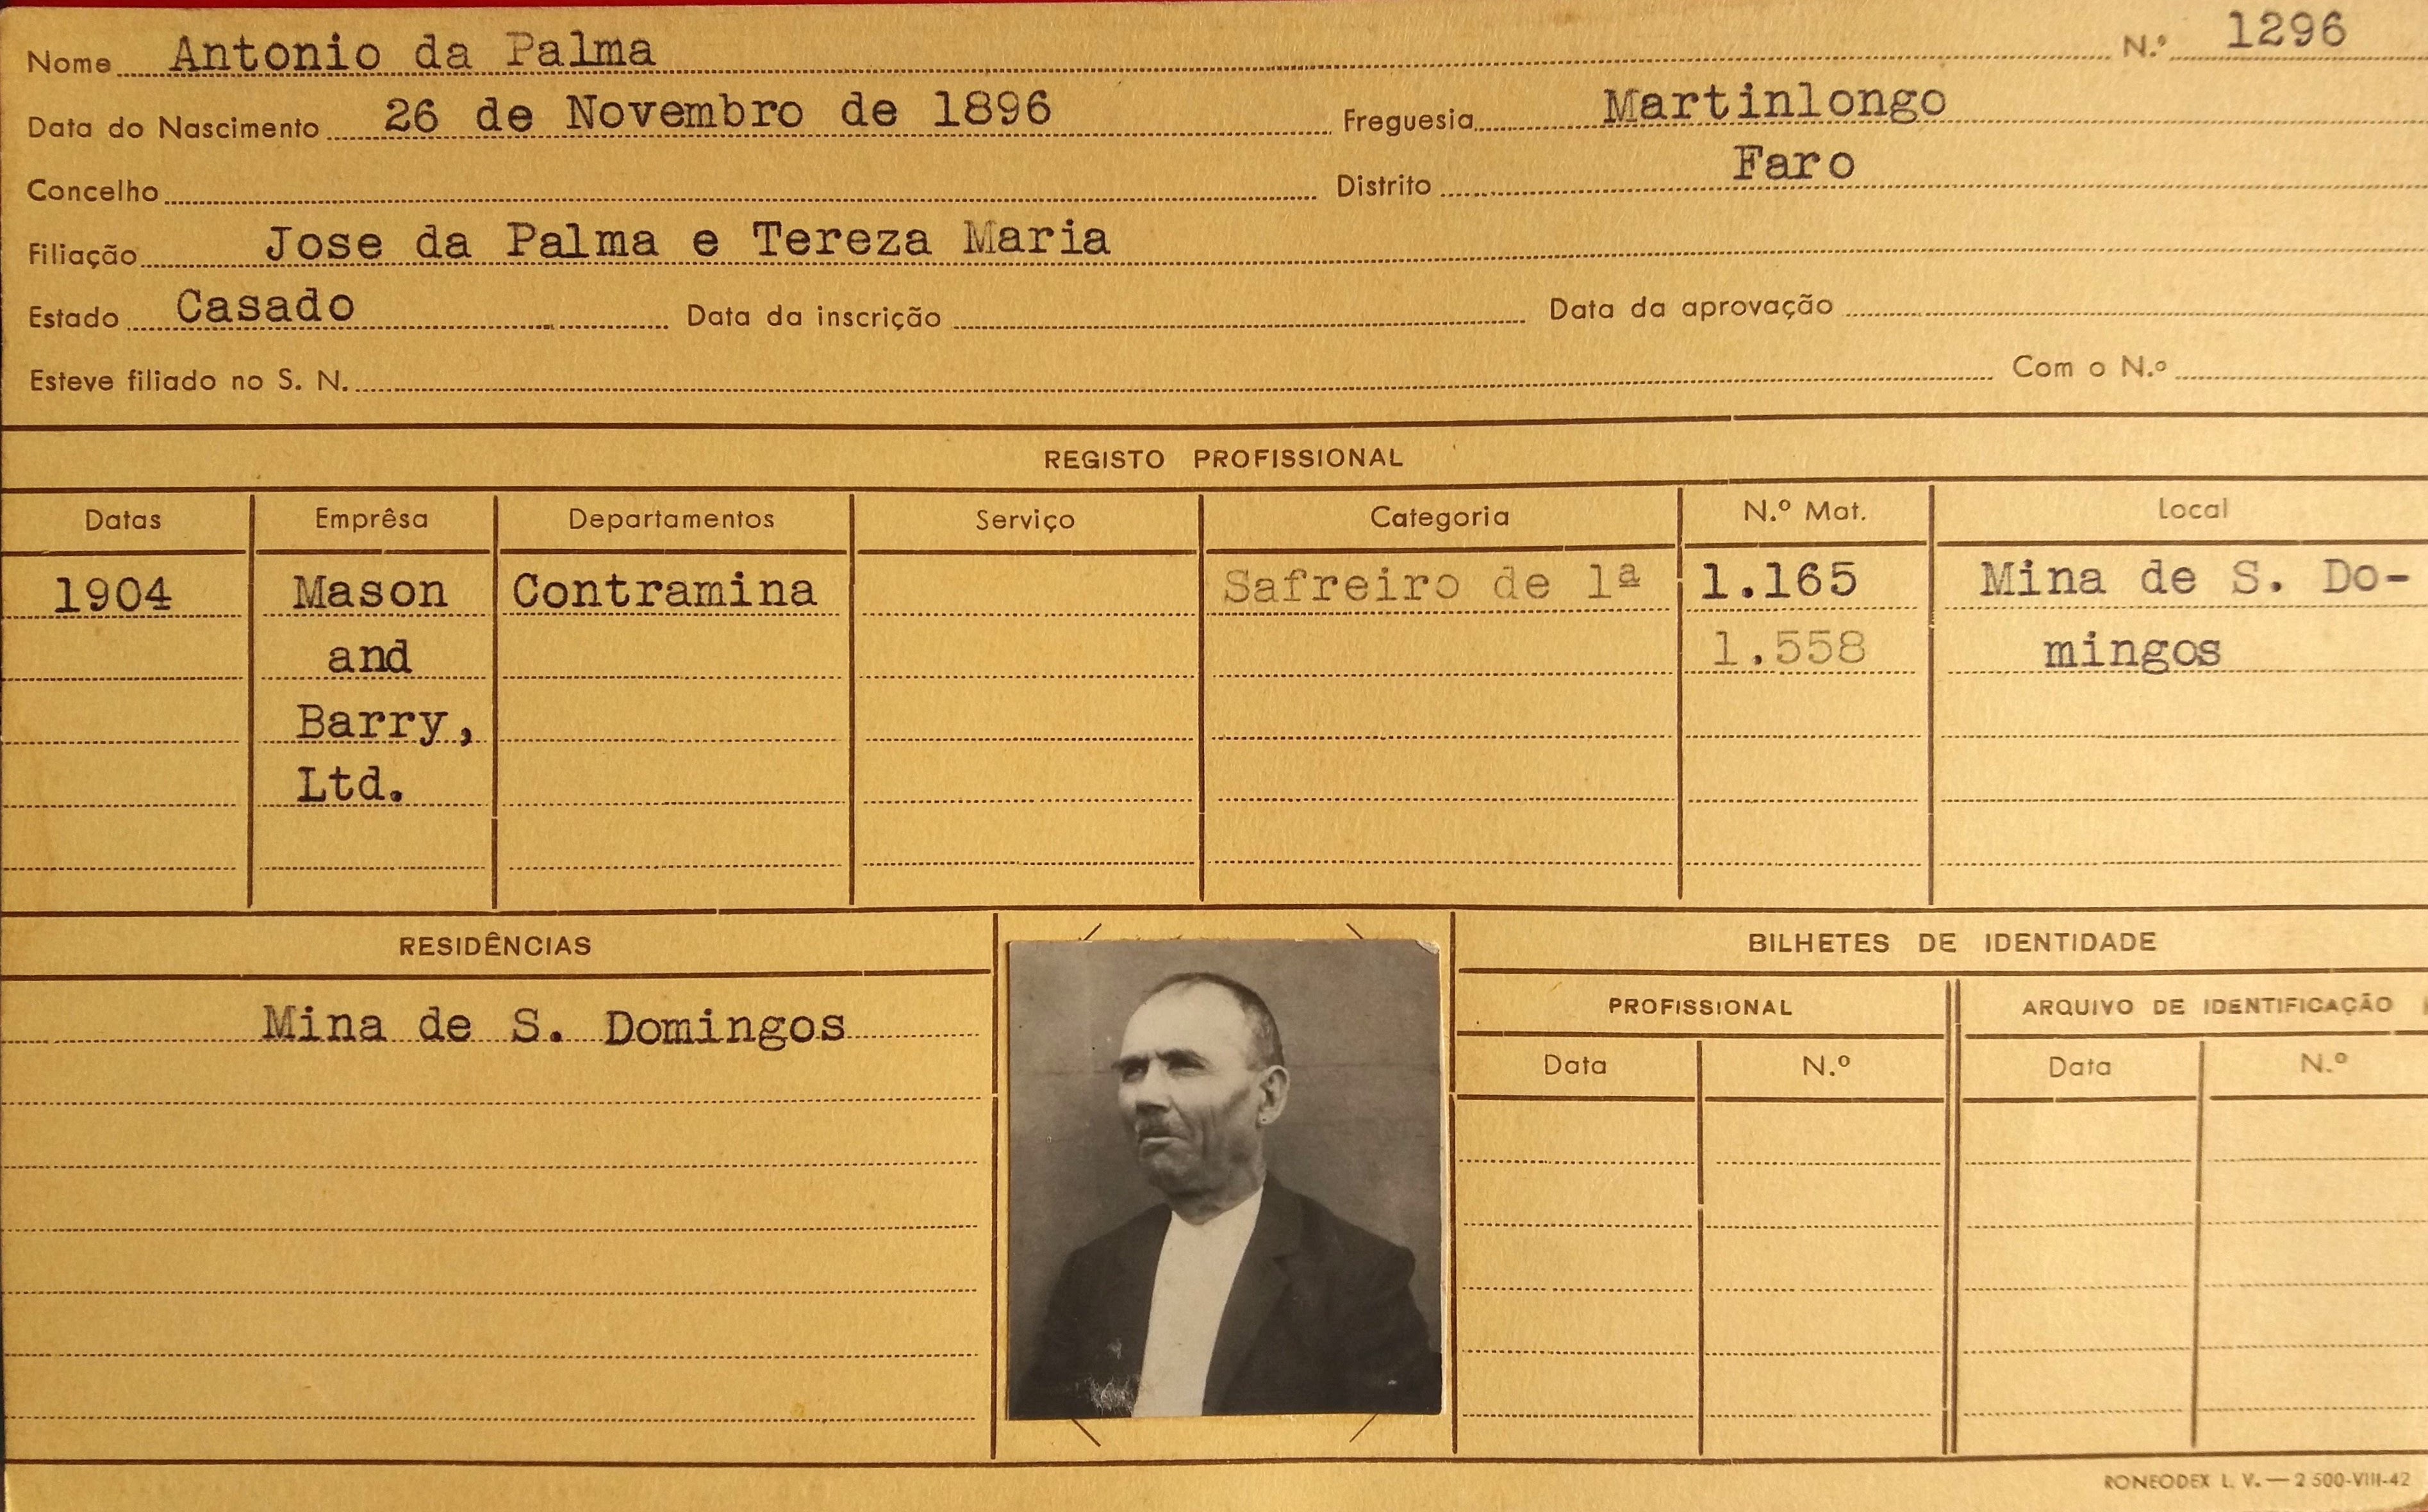 Nome Antonio da Palma N.º 1296
Data do Nascimento 26 de Novembro de 1896 Freguesia Martinlongo
Concelho Distrito Faro
Filiação Jose da Palma e Tereza Maria
Estado Casado Data da inscrição Data da aprovação
Esteve filiado no S. N. Com o N.º
REGISTO PROFISSIONAL
Datas Emprêsa Departamentos Serviço Categoria N.º Mat. Local
1904 Mason Contramina Safreiro de 1ª 1.165 Mina de S. Do-
and 1.558 mingos
Barry,
Ltd.
RESIDÊNCIAS BILHETES DE IDENTIDADE
PROFISSIONAL ARQUIVO DE IDENTIFICAÇÃO
Mina de S. Domingos
Data N.º Data N.º
RONEODEX L. V. — 2 500-VIII-42